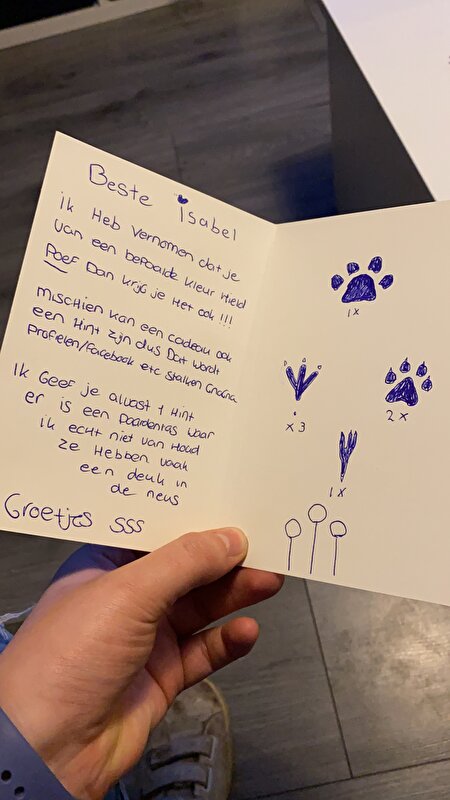 Beste Isabel
ik Heb vernomen dat je
van een bepaalde kleur Hield
Poef Dan krijg je Het ook !!!
Mischien kan een cadeau ook
een Hint zijn dus Dat wordt
Profielen/Facebook etc Stalken GnaGna
Ik Geef je alvast 1 Hint
er is een Paardenras waar
ik echt niet van Houd
ze Hebben vaak
een deuk in
de neus
Groetjes SSS
1x
x3
2x
1x